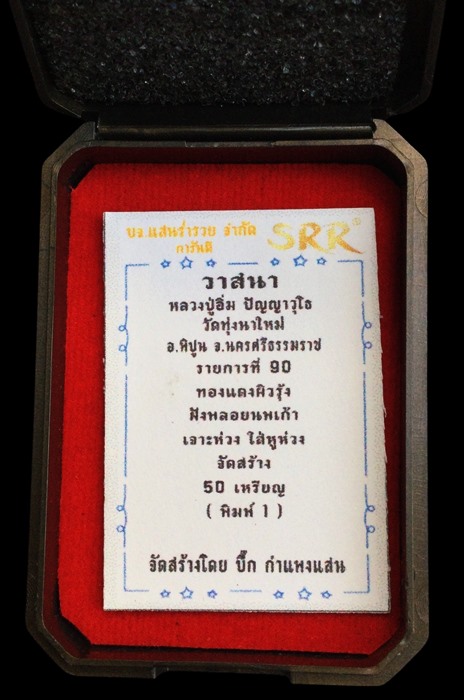 บจ.แสนร่ำรวย จำกัด
การันตี
SRR
วาสนา
หลวงปู่อิ่ม ปัญญาวุโธ
วัดทุ่งนาใหม่
อ.พิปูน จ.นครศรีธรรมราช
รายการที่ 90
ทองแดงผิวรุ้ง
ฝังพลอยนพเก้า
เจาะห่วง ใส่หูห่วง
จัดสร้าง
50 เหรียญ
( พิมพ์ 1 )
จัดสร้างโดย บิ๊ก กำแพงแสน